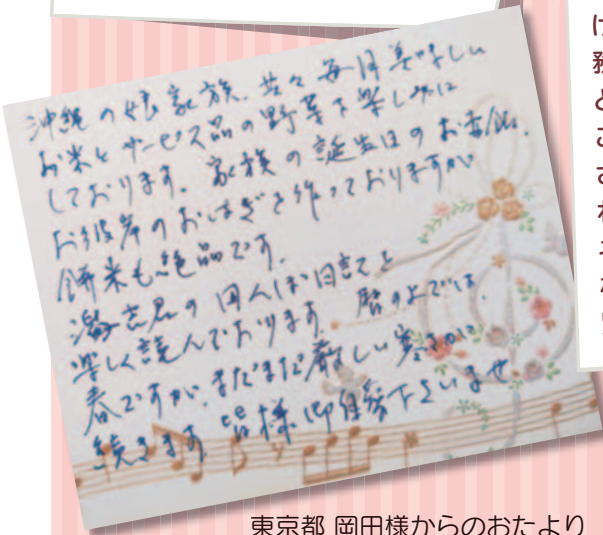 沖縄の娘家族、共々毎月美味しい
お米とサービス品の野菜を楽しみに
しております。家族の誕生日のお赤飯、
お彼岸のおはぎを作っておりますが
餅米も絶品です。
志君の田んぼ日誌を
楽しく読んでおります。暦の上では、
春ですが、まだまだ厳しい寒さが
続きます。皆様御自愛下さいませ
東京都 岡田様からのおたより
け
務
と
こ